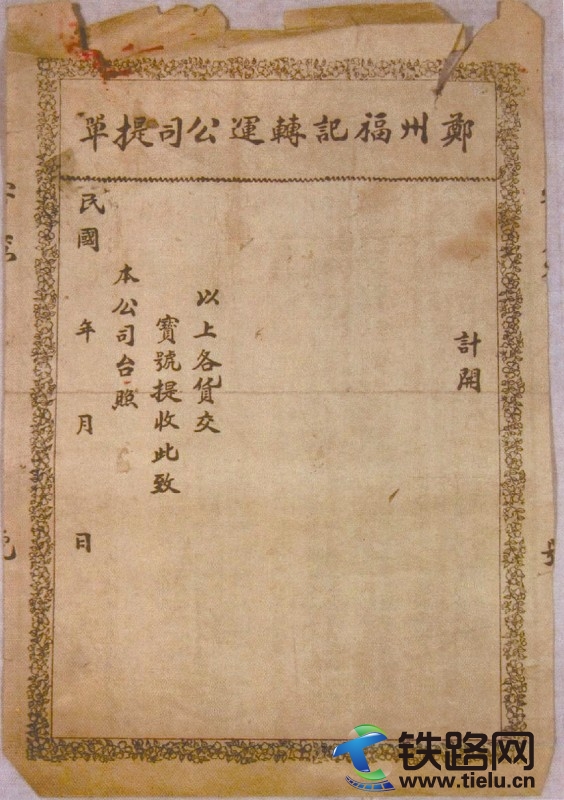 鄭州福記轉運公司提單
計開
以上各貨交
寶號提收此致
本公司台照
民國 年 月 日
號
號
铁路网
www.tielu.cn